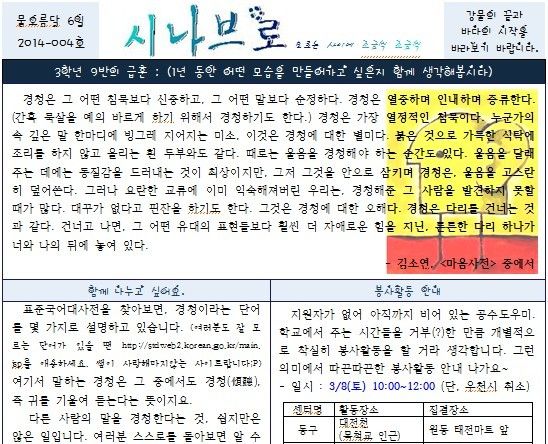 물오름달 6일
2014-004호
시나브로 모르는 사이에 조금씩 조금씩
강물의 끝과
바다의 시작을
바라보기 바랍니다.
3학년 9반의 급훈 : (1년 동안 어떤 모습을 만들어가고 싶은지 함께 생각해봅시다)
경청은 그 어떤 침묵보다 신중하고, 그 어떤 말보다 순정하다. 경청은 열중하며 인내하며 증류한다.
(간혹 묵살을 예의 바르게 하기 위해서 경청하기도 한다.) 경청은 가장 열정적인 침묵이다. 누군가의
속 깊은 말 한마디에 빙그레 지어지는 미소, 이것은 경청에 대한 별미다. 붉은 것으로 가득한 식탁에
조리를 하지 않고 올리는 흰 두부와도 같다. 때로는 울음을 경청해야 하는 순간도 있다. 울음을 달래
주는 데에는 동질감을 드러내는 것이 최상이지만, 그저 그것을 안으로 삼키며 경청은, 울음을 고스란
히 덮어쓴다. 그러나 요란한 교류에 이미 익숙해져버린 우리는, 경청해준 그 사람을 발견하지 못할
때가 많다. 대꾸가 없다고 핀잔을 하기도 한다. 그것은 경청에 대한 오해다. 경청은 다리를 건너는 것
과 같다. 건너고 나면, 그 어떤 유대의 표현들보다 훨씬 더 자애로운 힘을 지닌, 튼튼한 다리 하나가
너와 나의 뒤에 놓여 있다.
- 김소연, <마음사전> 중에서
함께 나누고 싶어요.
표준국어대사전을 찾아보면, 경청이라는 단어
를 몇 가지로 설명하고 있습니다. (여러분도 잘 모
르는 단어가 있을 땐 http://stdweb2.korean.go.kr/main.
jsp를 애용하세요. 쌤이 사랑해마지않는 사이트랍니다:P)
여기서 말하는 경청은 그 중에서도 경청(傾聽),
즉 귀를 기울여 듣는다는 뜻이지요.
다른 사람의 말을 경청한다는 것, 쉽지만은
않은 일입니다. 여러분 스스로를 돌아보면 알 수
봉사활동 안내
지원자가 없어 아직까지 비어 있는 공수도우미.
학교에서 주는 시간들을 거부(?)한 만큼 개별적으
로 착실히 봉사활동을 할 거라 생각합니다. 그런
의미에서 따끈따끈한 봉사활동 안내 나가요~
- 일시 : 3/8(토) 10:00~12:00 (단, 우천시 취소)
센터명 활동장소 집결장소
동구 대전천 원동 태전마트 앞
(목척교 인근)